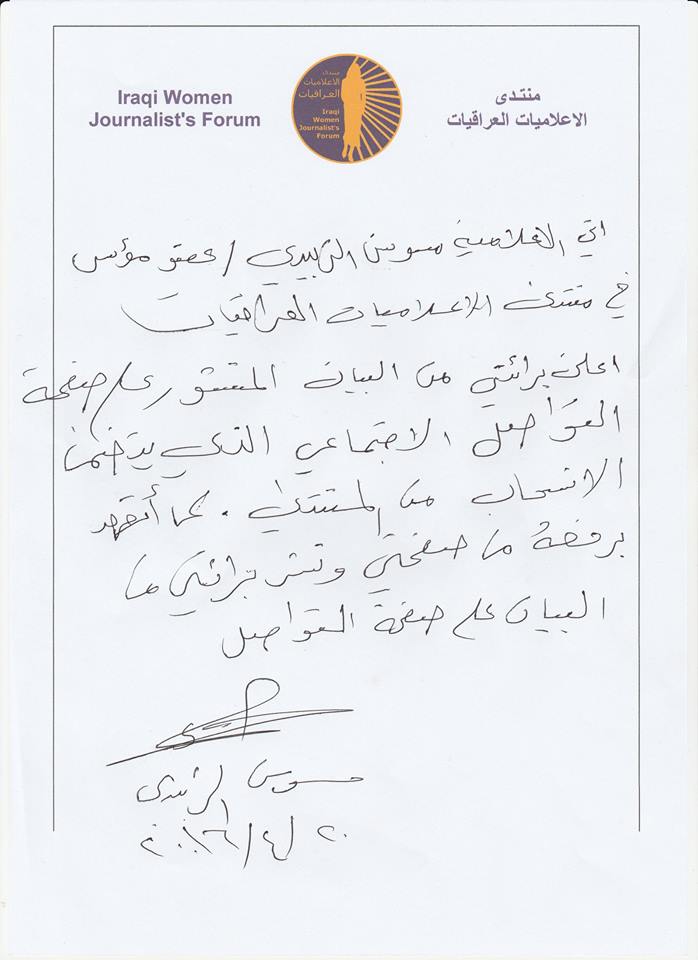 Iraqi Women
Journalist's Forum
منتدى
الاعلاميات
العراقيات
Iraqi
Women
Journalist's
Forum
منتدى
الاعلاميات العراقيات
اني الاعلامية سوسن الزبيدي / عضو مؤسس
في منتدى الاعلاميات العراقيات
اعلن برائتي من البيان المنشور على صفحة
التواصل الاجتماعي الذي يتضمن
الانسحاب من المنتدى . كما أتعهد
برفعه من صفحتي ونشر برائتي من
البيان على صفحة التواصل
سوسن الزبيدي
٢٠/٤/٢٠١٦